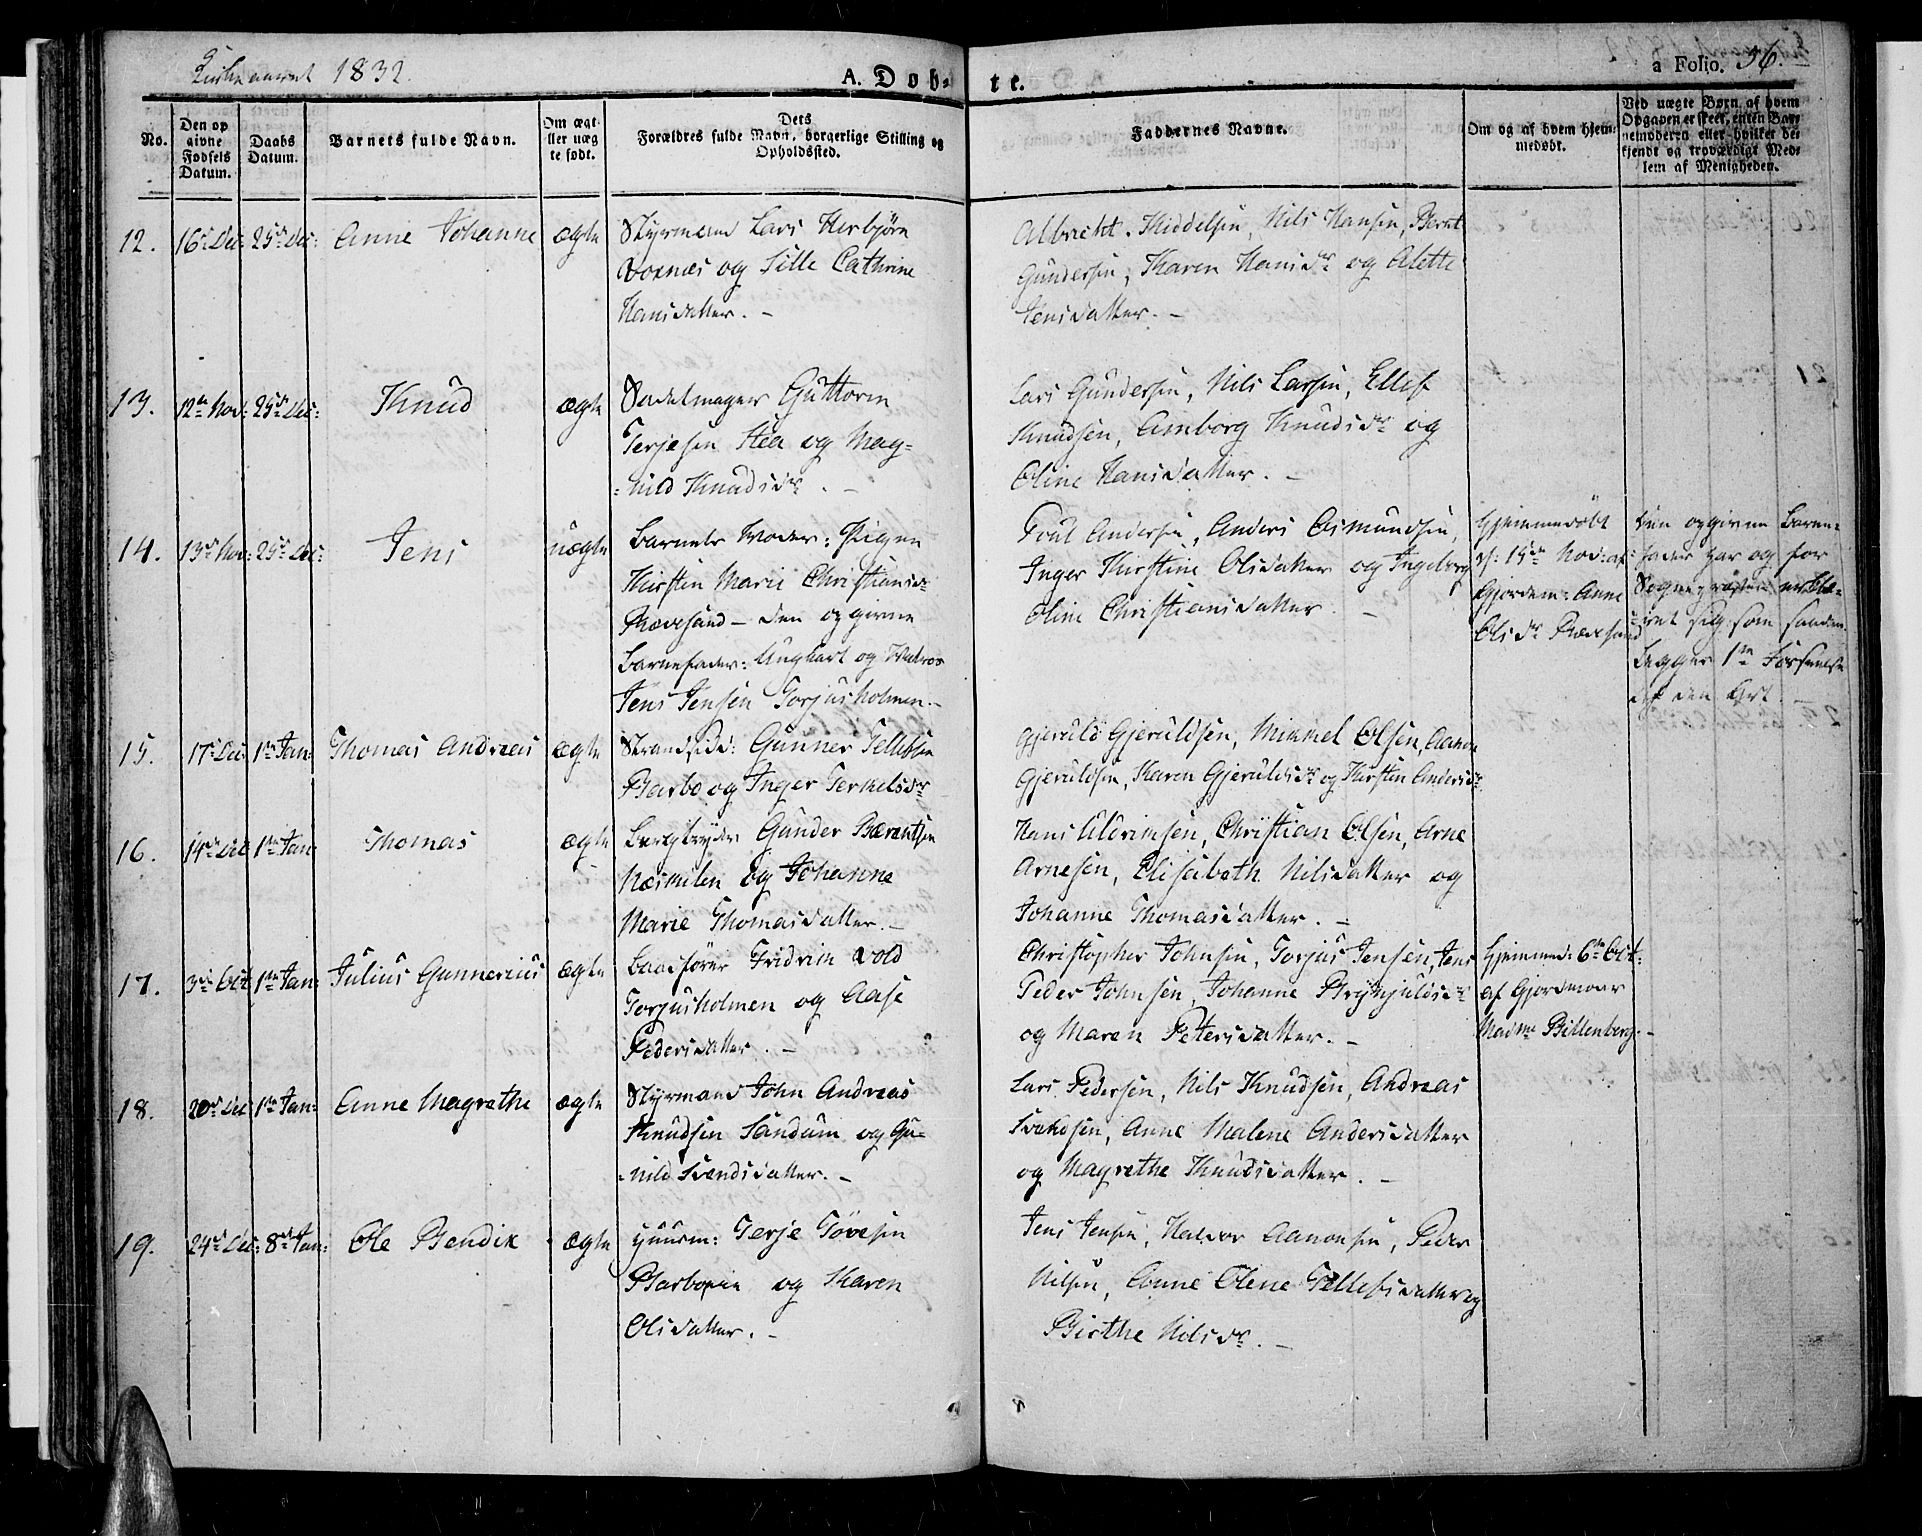 Kirkeaaret 1832.
A. Døb-
te.
a Folio. 56.
No.
Den op
givne
Fødsels
Datum.
Daabs
Datum.
Barnets fulde Navn.
Om ægte
eller uæg
te født.
Dets
Forældres fulde Navn, borgerlige Stilling og
Opholdssted.
Faddernes Navne.
Om og af hvem hjem-
medøbt.
Ved uægte Børn, af hvem
Opgaven er skeet, enten Bar-
nemoderen eller hvilket be-
kjendt og troværdigt Med-
lem af Menigheden.
12. 16de Dec: 25de Dec: Anne Johanne ægte
Styrmand Lars Herbjørn
og Sille Cathrine
Hansdatter. -
Albrecht Kiddelsen, Nils Hansen, Bernt
Gundersen, Karen Hansdr og Alette
Jensdatter. -
13. 12te Nov: 25de Dec: Knud ægte
Sadelmager Guttorm
Terjesen Stea og Mag-
nild Knudsdr. -
Lars Gundersen, Nils Larsen, Ellef
Knudsen, Amborg Knudsdr og
Oline Hansdatter. -
14. 13de Nov: 25de Dec: Jens uægte
Barnets Moder: Pigen
Kirsten Marie Christiansdr
Rævesand - den opgivne
Barnefader: Ungkarl og Matros
Jens Jensen Torjusholmen. -
Poul Andersen, Anders Osmundsen,
Inger Kirstine Olsdatter og Ingeborg
Oline Christiansdatter. -
Hjemmedøbt
d: 15de Nov: af
Gjordem: Anne
Olsdr Rævesand
Den opgivne Barne-
fader har og for
Sognepræsten erklæ-
ret sig som saadan.
Begges 1ste Forseelse
af den Art. -
15. 17de Dec: 1ste Jan: Thomas Andreas ægte
Strandsid: Gunner Tellefsen
Barbo og Inger Terkelsdr
Gjeruld Gjeruldsen, Mikkel Olsen, Aanon
Gjeruldsen, Karen Gjeruldsdr og Kirsten Andersdr
16. 14de Dec 1ste Jan: Thomas ægte
Gunder Berentsen
Næskilen og Johanne
Marie Thomasdatter. -
Hans Uldrixsen, Christian Olsen, Arne
Arnesen, Elisabeth Nilsdatter og
Johanne Thomasdatter. -
17. 3de Oct 1ste Jan: Julius Gunnerius ægte
Baadfører Fridrich Vold
Torjusholmen og Aase
Pedersdatter. -
Christopher Johnsen, Torjus Jensen, Jens
Peder Johnsen, Johanne Brynjuldsdr
og Maren Petersdatter. -
Hjemmed: 6te Oct:
af Gjordmoer
Madme Billenberg. -
18. 20de Dec 1ste Jan: Anne Magrethe ægte
Styrmand John Andreas
Knudsen Sandum og Gu-
nild Svendsdatter. -
Lars Pedersen, Nils Knudsen, Andreas
Svendsen, Anne Malene Andersdatter
og Magrethe Knudsdatter. -
19. 24de Dec: 8de Jan: Ole Bendix ægte
Huusm: Terje Tøvesen
og Karen
Olsdatter. -
Jens Jensen, Halvor Aanonsen, Peder
Nilsen, Anne Olene Tellefsdatter og
Birthe Nilsdr. -